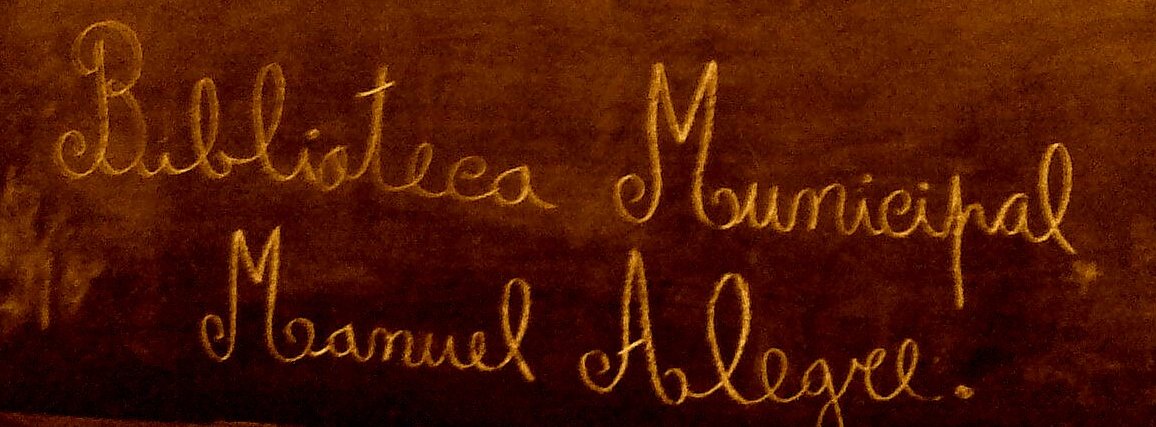 Biblioteca Municipal
Manuel Alegre.